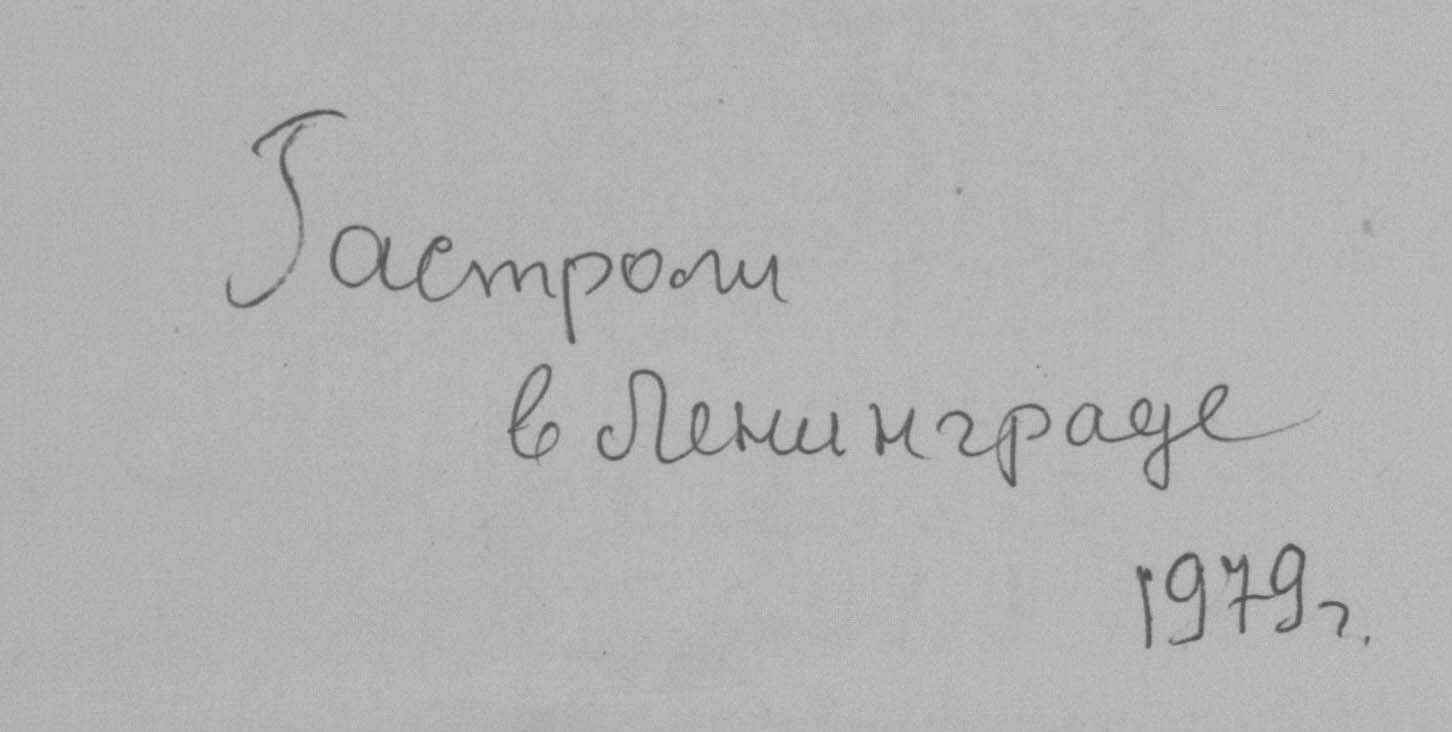 Гастроли
в Ленинграде
1979г.